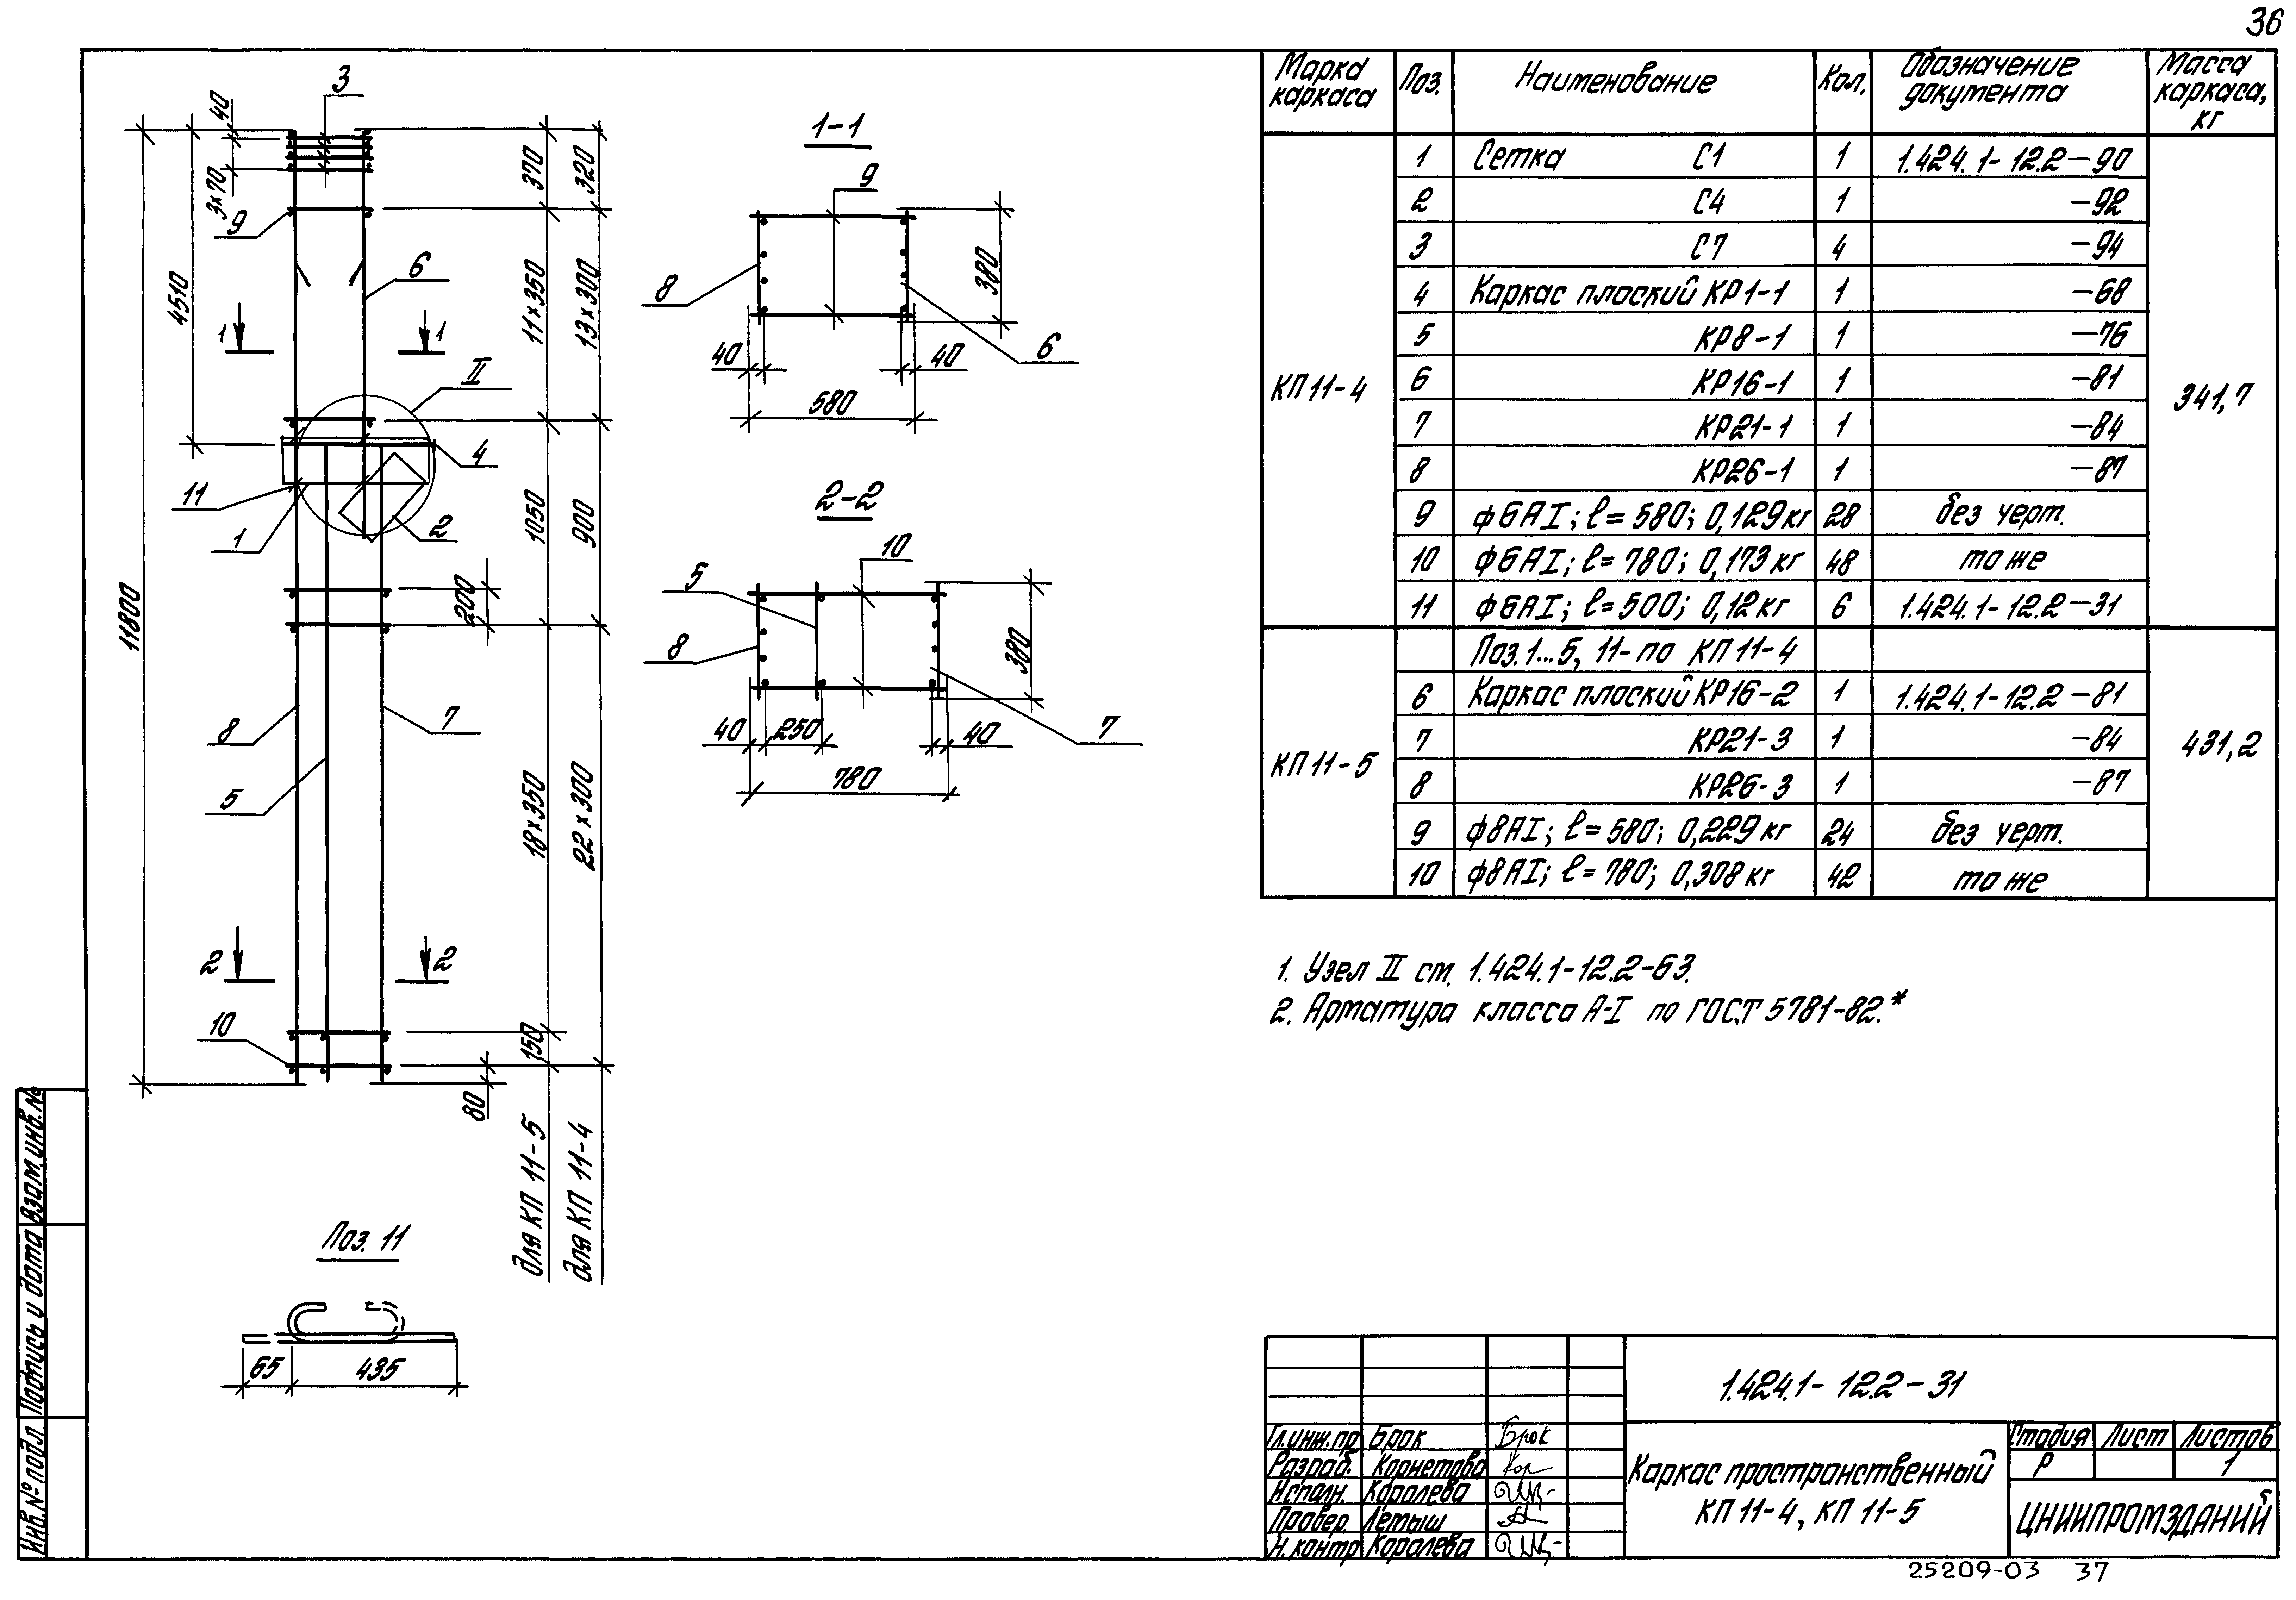 36
Марка каркаса Поз. Наименование Кол. Обозначение документа Масса каркаса, кг
КП 11-4
1 Сетка С1 1 1.424.1-12.2-90
2 С4 1 -92
3 С7 4 -94
4 Каркас плоский КР1-1 1 -68
5 КР8-1 1 -76
6 КР16-1 1 -81
7 КР21-1 1 -84
8 КР26-1 1 -87
9 ф6АI; ℓ=580; 0,129кг 28 без черт.
10 ф6АI; ℓ=780; 0,173кг 48 то же
11 ф6АI; ℓ=500; 0,12кг 6 1.424.1-12.2-31
341,7
КП 11-5
Поз. 1...5, 11- по КП 11-4
6 Каркас плоский КР16-2 1 1.424.1-12.2-81
7 КР21-3 1 -84
8 КР26-3 1 -87
9 ф8АI; ℓ=580; 0,229кг 24 без черт.
10 ф8АI; ℓ=780; 0,308кг 42 то же
431,2
3
40
3×70
9
4510
11800
370
320
6
11×350
13×300
1 1
II
4
11
1
2
1050
900
200
8
7
5
18×350
22×300
2 2
10
150
80
для КП 11-5
для КП 11-4
1-1
9
8
380
6
40 40
580
2-2
10
5
8
380
7
40 250 40
780
Поз. 11
65 435
1. Узел II см. 1.424.1-12.2-63.
2. Арматура класса А-I по ГОСТ 5781-82.*
Взам.инв.№
Подпись и дата
Инв.№ подл.
1.424.1-12.2-31
Гл.инж.пр Брок Брок
Разраб. Корнетова Кор
Исполн. Королева
Провер. Летыш
Н.контр Королева
Каркас пространственный
КП 11-4, КП 11-5
Стадия Лист Листов
Р 1
ЦНИИПРОМЗДАНИЙ
25209-03 37